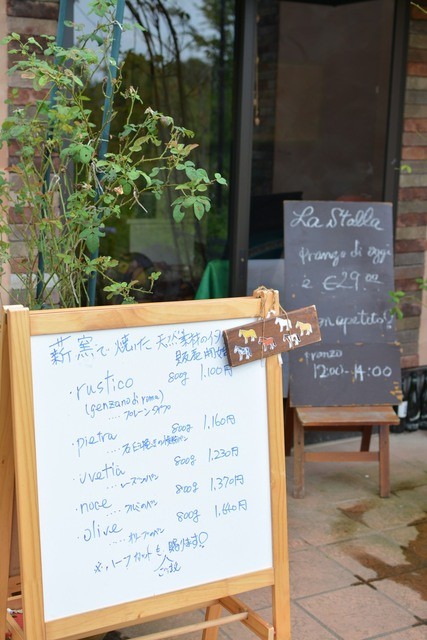 薪窯で焼いた天然素材の
販売開始
・rustico 800g 1.100円
(genzano di roma)
・・・・プレーンタイプ
・pietra 800g 1.160円
・uvetta 800g 1.230円
・・・・レーズンのパン
・noce 800g 1.370円
・・・・クルミのパン
・olive 800g 1.640円
・・・・オリーブのパン
※ハーフカットも賜ります!
La Stalla
pranzo di oggi
è €29.00
Buon appetito!
pranzo
12:00-14:00